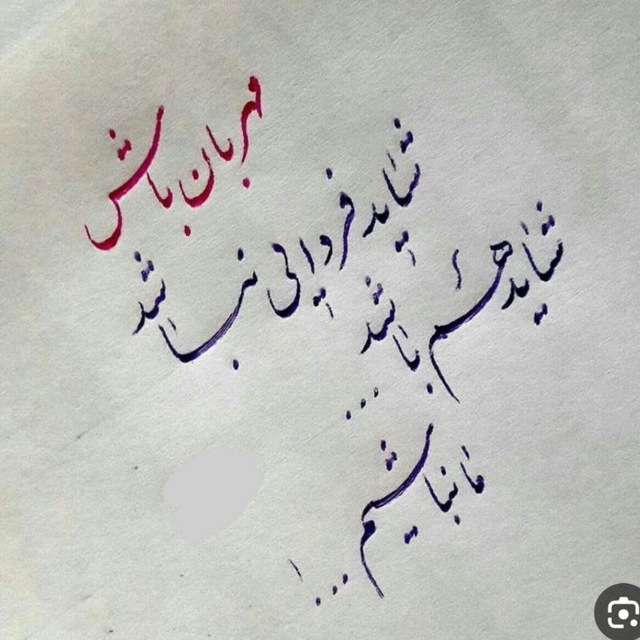 مهربان باش
شاید فردایی نباشد
شاید هم باشد
...
ما نباشیم...!